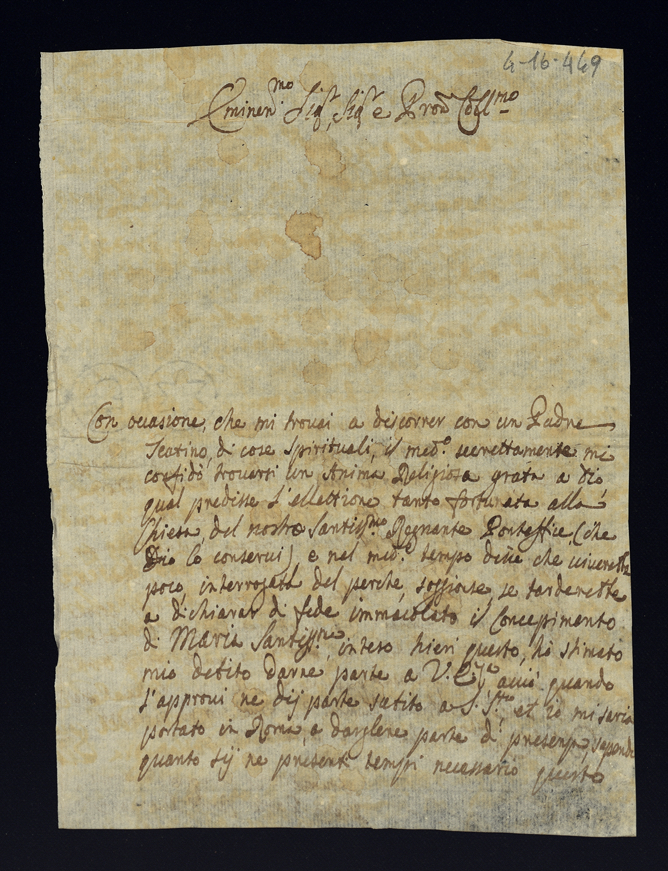 4-16-449
Eminen.mo Sig.r, Sig.r e Pron Coll.mo
Con occasione, che mi trovai a discorrer con un Padre
Teatino, di cose spirituali, il med.o secrettamente mi
confidò trovarsi un Anima Religiosa grata a Dio,
qual predisse l'ellettione tanto fortunata alla
Chiesa, del nostro Santiss.mo Regnante Ponteffice (che
Dio lo conservi) e nel med.o tempo disse che viverebbe
poco, interrogata del perche, soggionse, se tarderebbe
a dichiarar di fede immacolato il Conceppimento
di Maria Santiss.ma, inteso hieri questo, hò stimato
mio debito darne parte a V. Em.za, acciò quando
l'approvi ne dij parte subito a S. S.tà, et io mi saria
portato in Roma, a dargliene parte di presenza, sapendo
quanto sij ne presenti tempi necessario questo